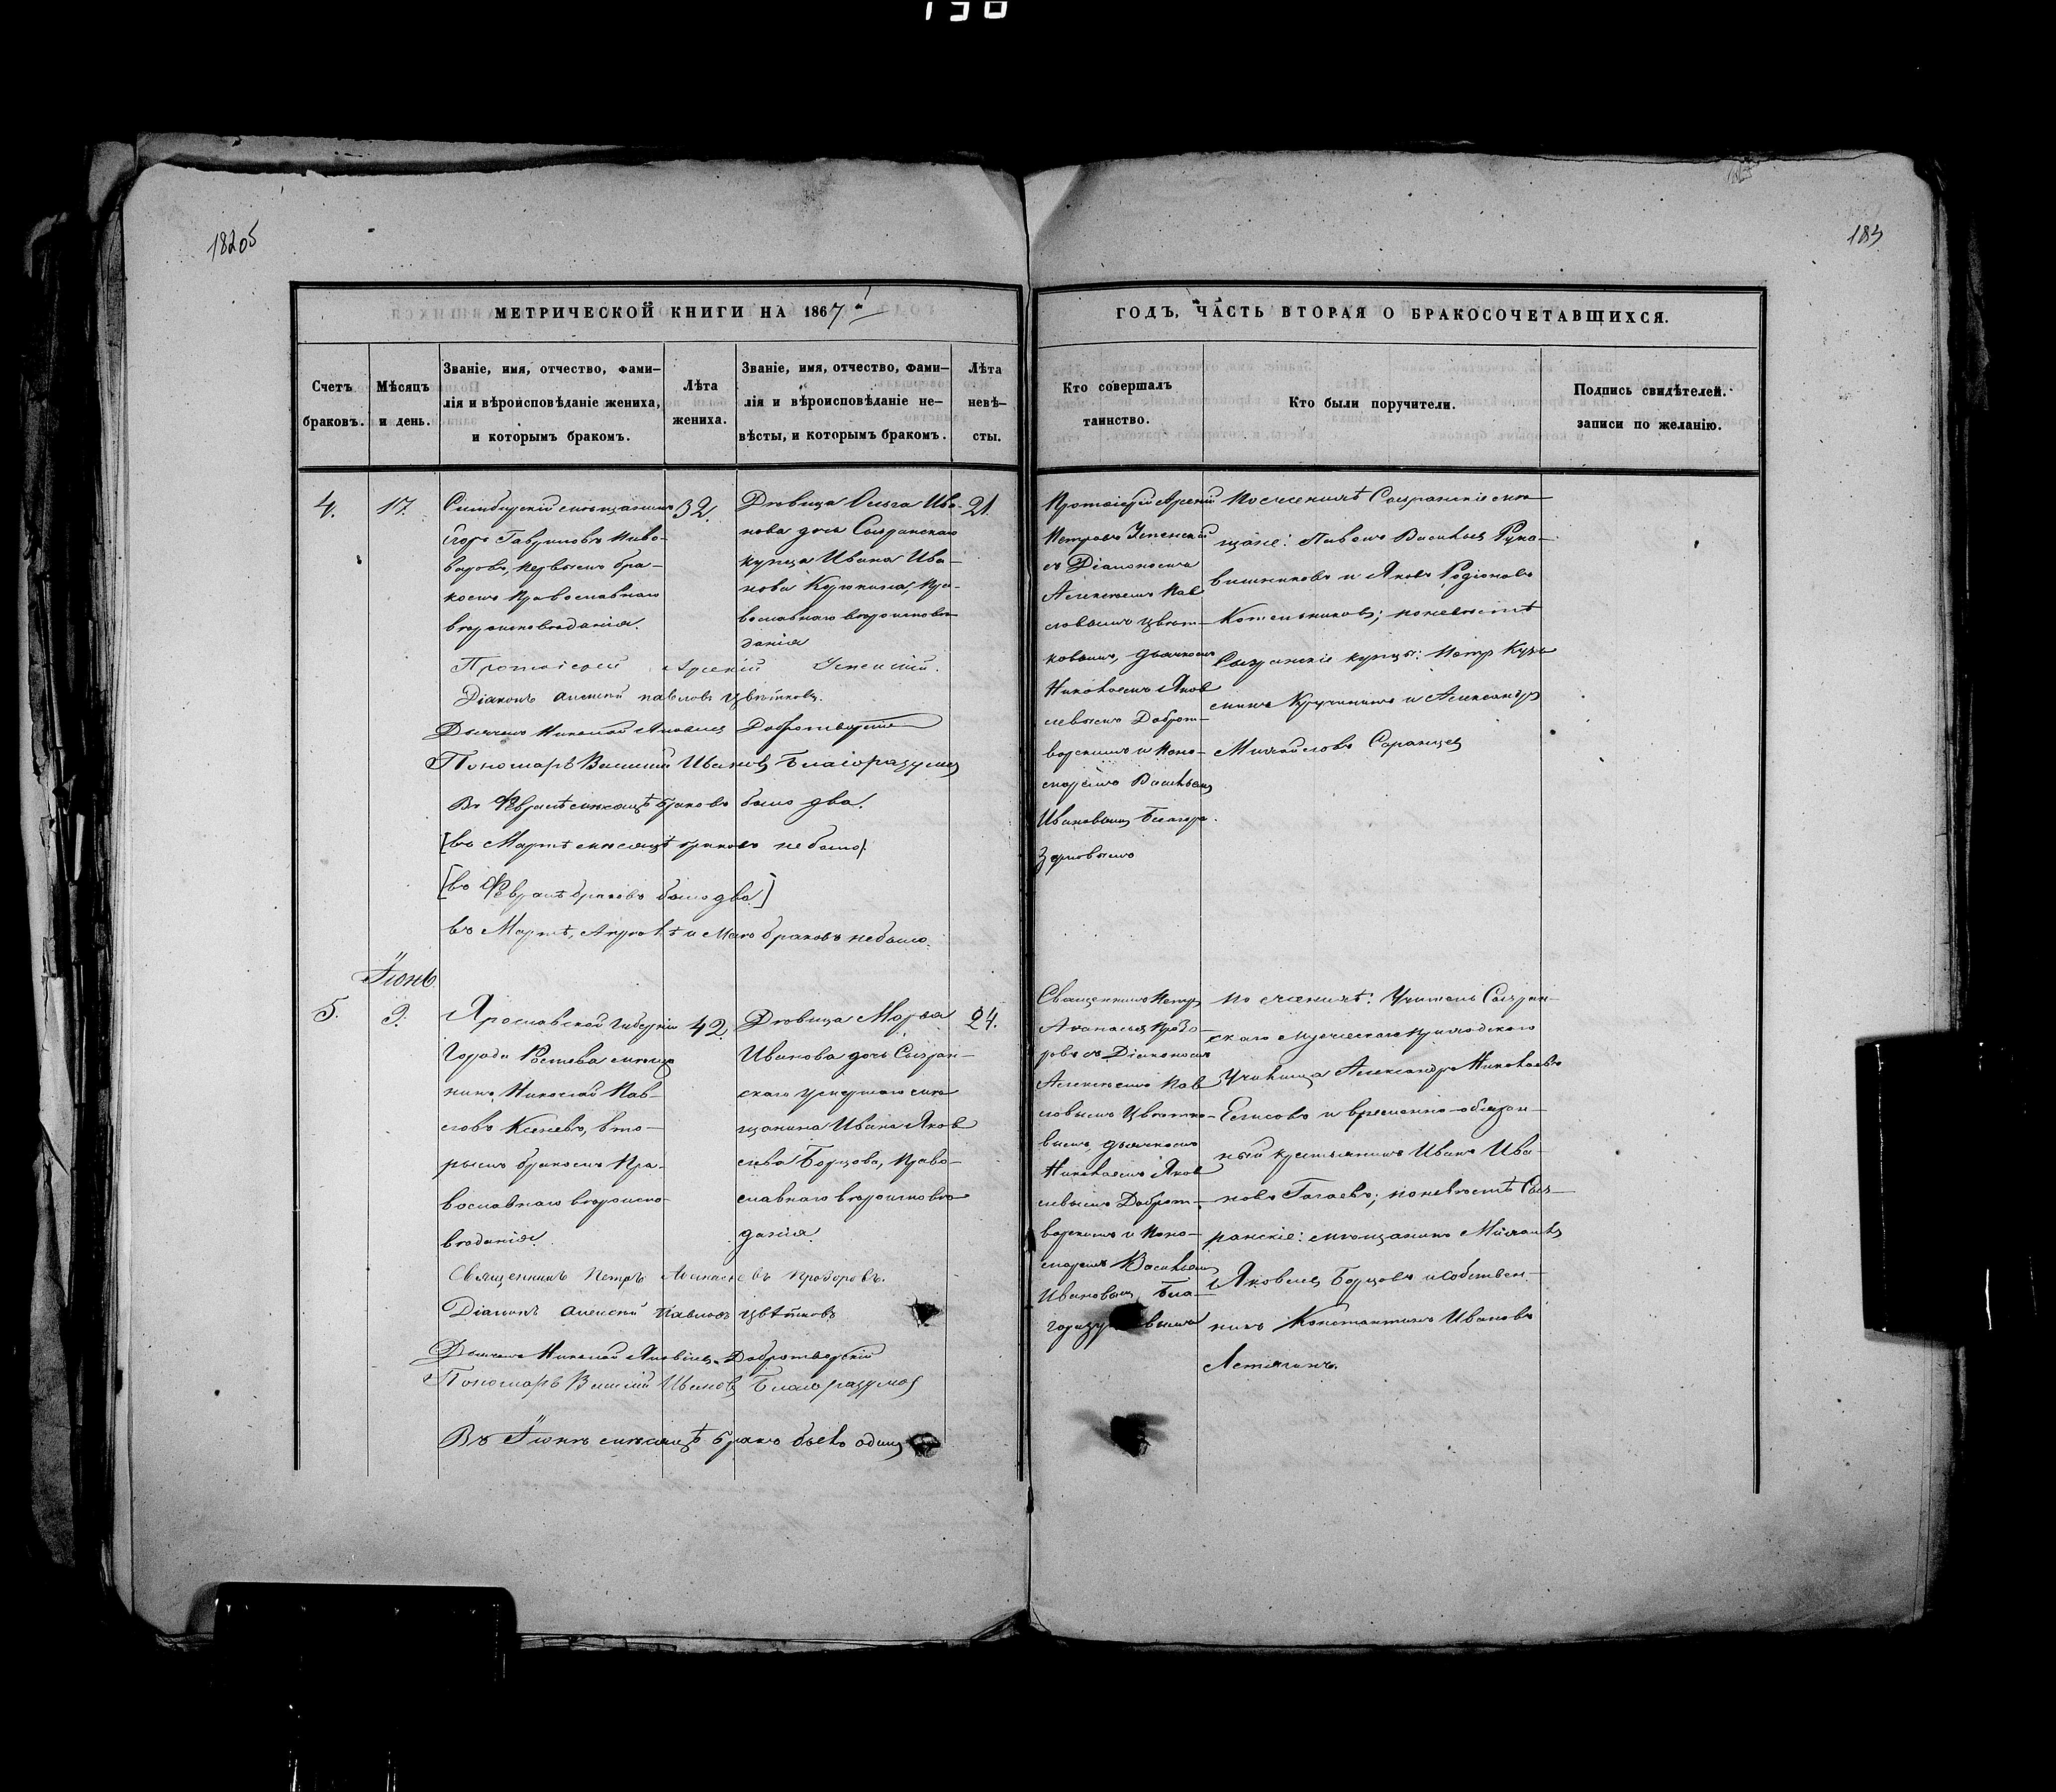 18205
183
МЕТРИЧЕСКОЙ КНИГИ НА 1867й
ГОДЪ, ЧАСТЬ ВТОРАЯ О БРАКОСОЧЕТАВШИХСЯ.
Счетъ
браковъ.
Мѣсяцъ
и день.
Званіе, имя, отчество, фами–
лія и вѣроисповѣданіе жениха,
и которымъ бракомъ.
Лѣта
жениха.
Званіе, имя, отчество, фами–
лія и вѣроисповѣданіе не–
вѣсты, и которымъ бракомъ.
Лѣта
невѣ–
сты.
Кто совершалъ
таинство.
Кто были поручители.
Подпись свидѣтелей
записи по желанію.
4.
17.
Симбирскій мѣщанинъ
Егоръ Гавриловъ Пиво-
варовъ, первымъ бра-
комъ православнаго
вѣроисповѣданія.
32.
Дѣвица Ольга Ива-
нова дочь Сызранскаго
купца Ивана Ива-
нова Курюкина, пра-
вославнаго вѣроисповѣ
данія
21.
Протоіерей Арсеній
Петровъ Успенскій
съ Діакономъ
Алексѣемъ Пав
ловымъ Цвѣт-
ковымъ, дьячкомъ
Николаемъ Яков
левымъ Доброт-
ворскимъ и Поно-
маремъ Васильемъ
Ивановымъ Благора-
зумовымъ
По женихѣ Сызранскіе мѣ-
щане: Павелъ Васильевъ Рука-
вишниковъ и Яковъ Родіоновъ
Котельниковъ; по невѣстѣ
Сызранскіе купцы: Петръ Кузь
минъ Кручининъ и Александръ
Михайловъ Саранцевъ
Протоіерей Арсеній Успенскій.
Діаконъ Алексей Павловъ Цвѣтковъ.
Дьячекъ Николай Яковлевъ Добротворскій
Пономарь Василий Ивановъ Благоразумовъ
Въ Февралѣ мѣсяцѣ браковъ было два.
[въ Мартѣ мѣсяцѣ браковъ не было].
[въ Февралѣ браковъ было два.]
въ Мартѣ, Апрелѣ и Маѣ браковъ не было.
Іюнь.
5.
9.
Ярославской Губерніи
Города Ростова мѣща
нинъ Николай Пав-
ловъ Кеневъ, вто-
рымъ бракомъ Пра-
вославнаго вѣроиспо-
вѣданія.
42.
Дѣвица Марья
Иванова дочь Сызран-
скаго умершаго мѣ
щанина Ивана Яков
лева Борцова, Право-
славнаго вѣроисповѣ
данія.
24.
Священникъ Петръ
Афанасьевъ Прозо-
ровъ съ Діакономъ
Алексѣемъ Пав
ловымъ Цвѣтко-
вымъ, дьячкомъ
Николаемъ Яков
левымъ Доброт-
ворскимъ и Поно-
маремъ Васильемъ
Ивановымъ Бла-
горазумовымъ
по женихѣ: Учитель Сызран-
скаго Мужескаго приходскаго
Училища Александръ Николаевъ
Елисовъ и временно-обязан-
ный крестьянинъ Иванъ Ива-
новъ Гагаевъ; по невѣстѣ Сыз-
ранскіе: мѣщанинъ Михаилъ
Яковлевъ Борцовъ и собствен-
никъ Константинъ Ивановъ
Летягинъ.
Священникъ Петръ Афанасьевъ Прозоровъ.
Діаконъ Алексей Павловъ Цвѣтковъ
Дьячекъ Николай Яковлевъ Добротворскій
Пономарь Василий Ивановъ Благоразумовъ
Въ Іюнѣ мѣсяцѣ бракъ былъ одинъ